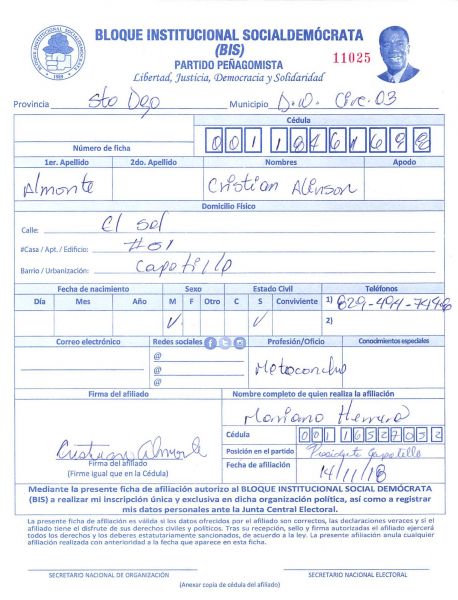 BLOQUE INSTITUCIONAL SOCIALDEMÓCRATA
(BIS)
PARTIDO PEÑAGOMISTA
Libertad, Justicia, Democracia y Solidaridad
11025
BLOQUE INSTITUCIONAL SOCIALDEMÓCRATA
1989
Provincia Sto Dgo Municipio D.N. Circ. 03
Cédula
Número de ficha
1er. Apellido 2do. Apellido Nombres Apodo
Almonte Cristian Alinson
Domicilio Físico
Calle: El sol
#Casa / Apt. / Edificio: #51
Barrio / Urbanización: Capotillo
Fecha de nacimiento Sexo Estado Civil Teléfonos
Día Mes Año M F Otro C S Conviviente 1) 829-494-7446
2)
Correo electrónico Redes sociales Profesión/Oficio Conocimientos especiales
@
@
@
Motoconcho
Firma del afiliado Nombre completo de quien realiza la afiliación
Mariano Herrera
Cédula 00116527052
Cristian Almonte
Posición en el partido Presidente Capotillo
Firma del afiliado
(Firme igual que en la Cédula)
Fecha de afiliación 14/11/18
Mediante la presente ficha de afiliación autorizo al BLOQUE INSTITUCIONAL SOCIAL DEMÓCRATA
(BIS) a realizar mi inscripción única y exclusiva en dicha organización política, así como a registrar
mis datos personales ante la Junta Central Electoral.
La presente ficha de afiliación es válida si los datos ofrecidos por el afiliado son correctos, las declaraciones veraces y si el
afiliado tiene el disfrute de sus derechos civiles y políticos. Tras su recepción, sello y firma autorizada el afiliado ejercerá
todos los derechos y los deberes estatutariamente sancionados, de acuerdo a la ley. La presente afiliación anula cualquier
afiliación realizada con anterioridad a la fecha que aparece en esta ficha.
SECRETARIO NACIONAL DE ORGANIZACIÓN SECRETARIO NACIONAL ELECTORAL
(Anexar copia de cédula del afiliado)